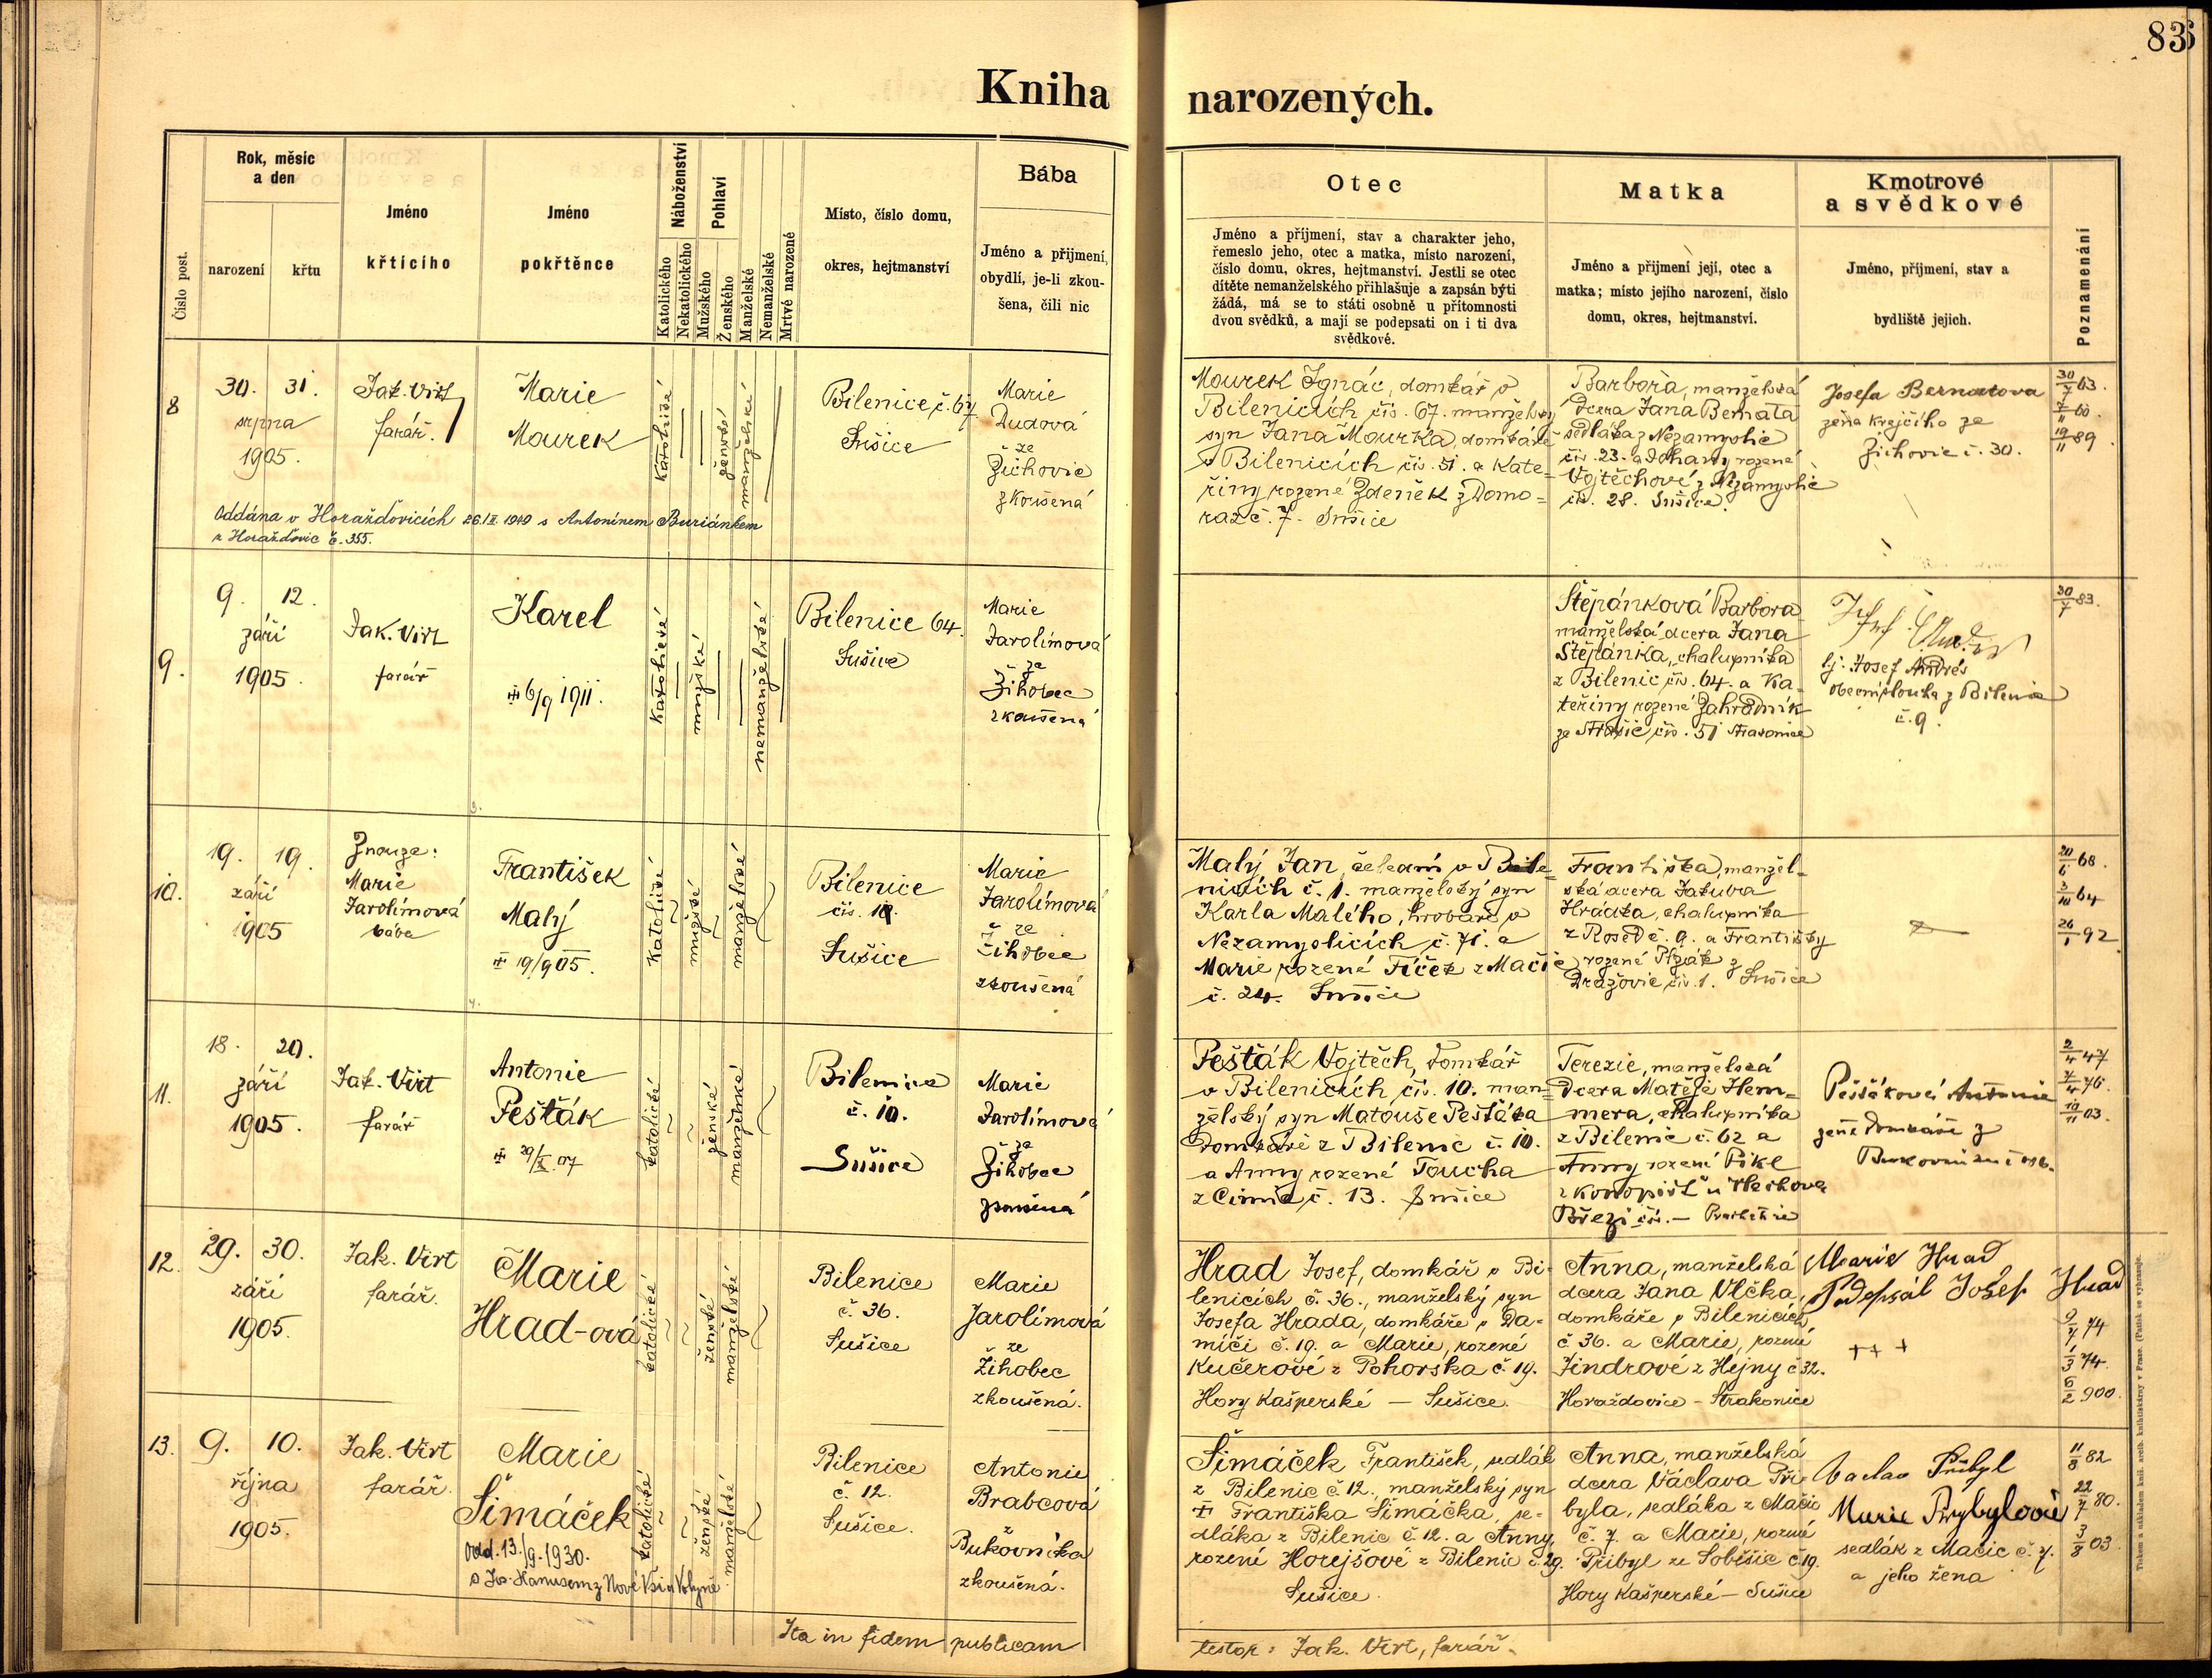 83
Kniha narozených.
Číslo post.
Rok, měsíc
a den
narození
křtu
Jméno
křtícího
Jméno
pokřtěnce
Náboženství
Katolického
Nekatolického
Pohlaví
Mužského
Ženského
Manželské
Nemanželské
Mrtvé narozené
Místo, číslo domu,
okres, hejtmanství
Bába
Jméno a přijmení,
obydlí, je-li zkou-
šena, čili nic
Otec
Jméno a příjmení, stav a charakter jeho,
řemeslo jeho, otec a matka, místo narození,
číslo domu, okres, hejtmanství. Jestli se otec
dítěte nemanželského přihlašuje a zapsán býti
žádá, má se to státi osobně u přítomnosti
dvou svědků, a mají se podepsati on i ti dva
svědkové.
Matka
Jméno a přijmení její, otec a
matka; místo jejího narození, číslo
domu, okres, hejtmanství.
Kmotrové
a svědkové
Jméno, příjmení, stav a
bydliště jejich.
Poznamenání
8
30. 31.
srpna
1905.
Jak. Virt
farář.
Marie
Mourek
katolické
ženské
manželské
Bilenice č. 67
Sušice
Marie
Dudová
ze
Žichovic
zkoušená
Oddána v Horažďovicích 26. 1940 s Antonínem Buriánkem
z Horažďovic č. 355.
Mourek Ignác, domkář v
Bilenicích čís. 67. manželský
syn Jana Mourka, domkáře
v Bilenicích čís. 51. a Kate-
řiny rozené Zdeněk z Domo-
raz č. 7. Sušice
Barbora, manželská
dcera Jana Bernata
sedláka z Nezamyslic
čís. 23. a Johany rozené
Vojtěchové z Nezamyslic
čís. 28. Sušice.
Josefa Bernatova
žena krejčího ze
Žichovic č. 30.
30/7 63.
7/11 60.
19/11 89.
9.
9. 12.
září
1905.
Jak. Virt
farář
Karel
6/9 1911.
katolické
mužské
nemanželské
Bilenice 64.
Sušice
Marie
Jarolímová
ze
Žihobec
zkoušená
Štěpánková Barbora
manželská dcera Jana
Štěpánka, chalupníka
z Bilenic čís. 64. a Ka-
teřiny rozené Zahradník
ze Strašic čís. 51 Strakonice
tj. Josef Andrés
obecní sluha z Bilenic
č. 9.
30/7 83.
3.
10.
19. 19.
září
1905
Znouze:
Marie
Jarolímová
bába
František
Malý
19/9 05.
katolické
mužské
manželské
Bilenice
čís. 1.
Sušice
Marie
Jarolímová
ze
Žihobec
zkoušená
Malý Jan, čeledín v Bile-
nicích č. 1. manželský syn
Karla Malého, hrobaře v
Nezamyslicích č. 71. a
Marie rozené Fíček z Mačic
č. 24. Sušice
Františka, manžel-
ská dcera Jakuba
Hrádka, chalupníka
z Rosed č. 9. a Františky
rozené z
Dražovic čís. 1. Sušice
20/6 68.
3/10 64
26/1 92
4.
11.
18. 20.
září
1905.
Jak. Virt
farář
Antonie
Pešťák
29/X 07
katolické
ženské
manželské
Bilenice
č. 10.
Sušice
Marie
Jarolímová
ze
Žihobec
Pešťák Vojtěch, domkář
v Bilenicích čís. 10. man-
želský syn Matouše Pešťáka
domkáře z Bilenic č. 10.
a Anny rozené Toucha
z Čimic č. 13. Sušice
Terezie, manželská
dcera Matěje Hem-
mera, chalupníka
z Bilenic č. 62 a
Anny rozené Pikl
z Konopišť u Vlachova
Březí čís. — Prachatice
Pešťáková Antonie
žena domkáře z
2/4 47
7/4 76.
19/11 03.
12.
29. 30.
září
1905.
Jak. Virt
farář.
Marie
Hrad-ová
katolické
ženské
manželské
Bilenice
č. 36.
Sušice
Marie
Jarolímová
ze
Žihobec
zkoušená.
Hrad Josef, domkář v Bi-
lenicích č. 36., manželský syn
Josefa Hrada, domkáře v Da-
míči č. 19. a Marie, rozené
Kučerové z Pohorska č. 19.
Hory Kašperské — Sušice.
Anna, manželská
dcera Jana Vlčka,
domkáře v Bilenicích
č 36. a Marie, rozené
Jindrové z Hejny č 32.
Horažďovice - Strakonice
Marie Hrad
Podepsál Jošef Hrad
+++
9/7 74
1/3 74.
6/2 900.
13.
9. 10.
října
1905.
Jak. Virt
farář.
Marie
Šimáček
Odd. 13./9. 1930.
s Jos. Hanusem z Nové Vsi u Volyně
katolické
ženské
manželské
Bilenice
č. 12.
Sušice.
Antonie
Brabcová
Bukovníka
zkoušená.
Šimáček František, sedlák
z Bilenic č 12., manželský syn
Františka Šimáčka, se-
dláka z Bilenic č 12. a Anny,
rozené Horejšové z Bilenic č. 29.
Sušice.
Anna, manželská
dcera Václava Při-
byla, sedláka z Mačic
č. 7. a Marie, rozené
Přibyl ze Soběšic č 19.
Hory Kašperské — Sušice
Vaclav Přibyl
Marie Przybylová
sedlák z Mačic č. 7.
a jeho žena
11/8 82
22/7 80.
3/8 03.
Ita in fidem publicam
testor: Jak. Virt, farář.